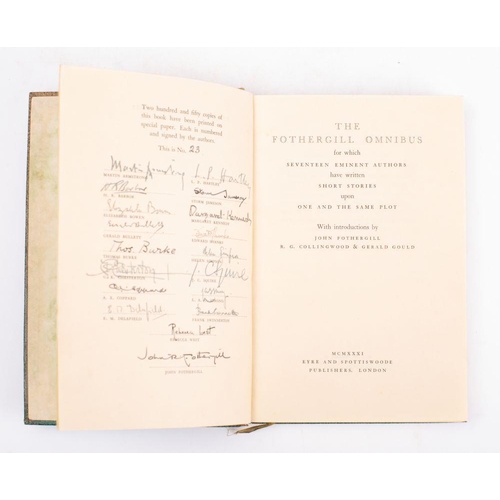 Two hundred and fifty copies of
this book have been printed on
special paper. Each is numbered
and signed by the authors.
This is No. 23
Martin Armstrong L. P. Hartley
MARTIN ARMSTRONG L. P. HARTLEY
H. R. BARBOR STORM JAMESON
Elizabeth Bowen Margaret Kennedy
ELIZABETH BOWEN MARGARET KENNEDY
Gerald Bullett
GERALD BULLETT EDWARD SHANKS
Thos Burke
THOMAS BURKE
A. E. Coppard
A. E. COPPARD
E. M. Delafield
E. M. DELAFIELD FRANK SWINNERTON
Rebecca West
REBECCA WEST
John Fothergill
JOHN FOTHERGILL
THE
FOTHERGILL OMNIBUS
for which
SEVENTEEN EMINENT AUTHORS
have written
SHORT STORIES
upon
ONE AND THE SAME PLOT
With introductions by
JOHN FOTHERGILL
R. G. COLLINGWOOD & GERALD GOULD
MCMXXXI
EYRE AND SPOTTISWOODE
PUBLISHERS, LONDON